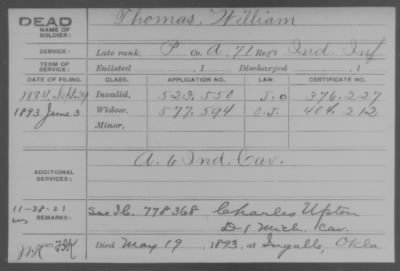 DEAD
NAME OF SOLDIER: Thomas, William
SERVICE: Late rank, P Co. A, 71 Reg't Ind. Inf
TERM OF SERVICE: Enlisted , 1 Discharged , 1
DATE OF FILING. CLASS. APPLICATION NO. LAW. CERTIFICATE NO.
1884 Invalid, 523.550 376.227
1893 June 3 Widow, 577.594 O.S. 404.212
Minor,
ADDITIONAL SERVICES: A. 6 Ind. Cav.
11-28-21 See I.C. 778368 Charles Upton
REMARKS: D 1 Mich. Cav.
Died May 19, 1893, at Ingalls, Okla